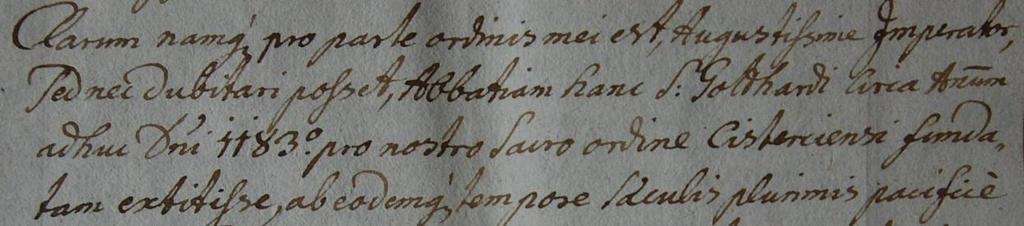 Clarum namq; pro parte ordinis mei est, Augustissime Imperator,
sed nec dubitari posset, Abbatiam hanc S: Gotthardi circa Anūm
adhuc Dn̄i 1183.º pro nostro sacro ordine Cisterciensi funda„
tam extitisse, ab eodemq; tempore sæculis plurimis pacificè